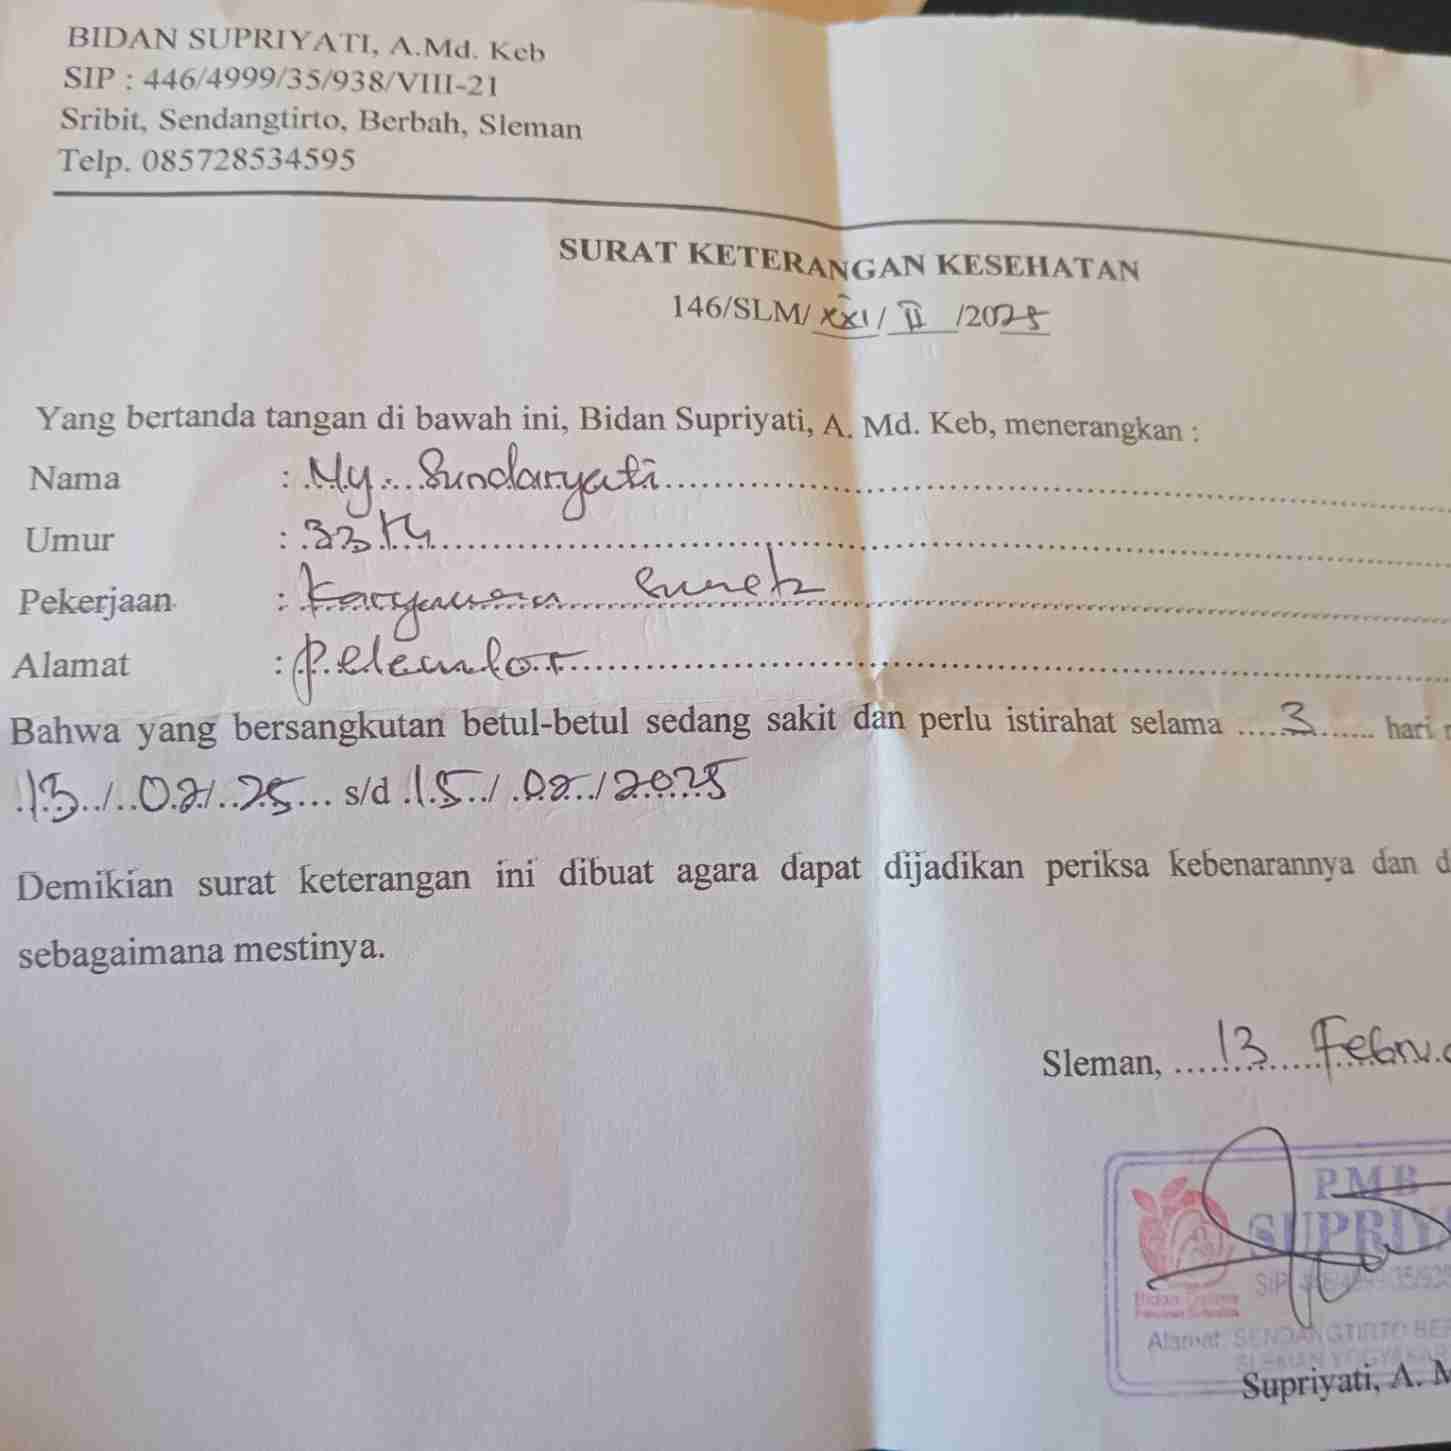 BIDAN SUPRIYATI, A.Md. Keb
SIP : 446/4999/35/938/VIII-21
Sribit, Sendangtirto, Berbah, Sleman
Telp. 085728534595
SURAT KETERANGAN KESEHATAN
146/SLM/ XXI / II /2025
Yang bertanda tangan di bawah ini, Bidan Supriyati, A. Md. Keb, menerangkan :
Nama : Ny. Sundaryati
Umur : 33 th
Pekerjaan : Karyawan
Alamat : Pelemlor
Bahwa yang bersangkutan betul-betul sedang sakit dan perlu istirahat selama .....3...... hari
13 / 02 / 25 s/d 15 / 02 / 2025
Demikian surat keterangan ini dibuat agara dapat dijadikan periksa kebenarannya dan d
sebagaimana mestinya.
Sleman, 13 Febru
PMB
SUPRIY
SIP 446/4999/35/938
Alamat: SENDANGTIRTO BER
SLEMAN YOGYAKAR
Supriyati, A. M